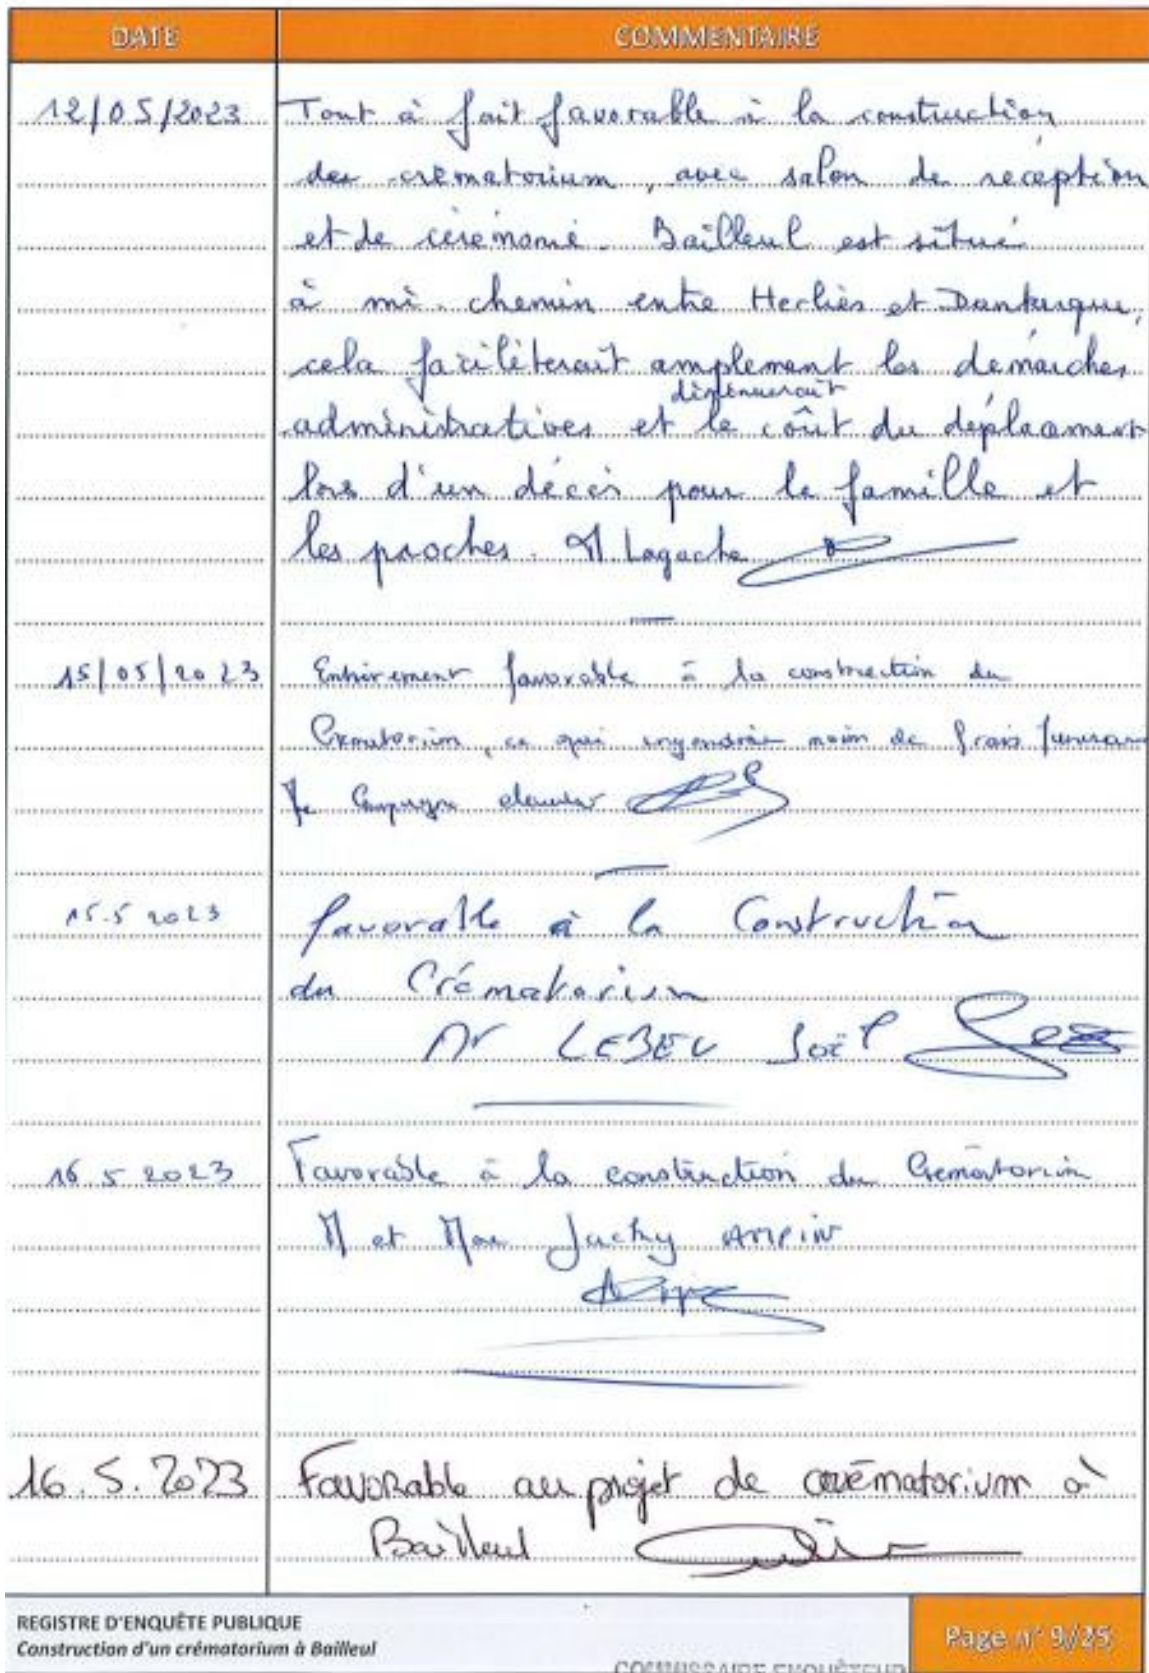 DATE COMMENTAIRE
12/05/2023 Tout à fait favorable à la construction
des crématorium, avec salon de réception
et de cérémonie. Bailleul est situé
à mi-chemin entre Herlies et Dunkerque,
cela faciliterait amplement les démarches
diminuerait
administratives et le coût du déplacement
lors d'un décès pour la famille et
les proches. M Lagache
15/05/2023 Entièrement favorable à la construction du
Crematorium, ce qui moin de frais
15.5 2023 favorable à la Construction
du Crématorium
Mr LEBEU Joël
16.5 2023 Favorable à la construction du Crématorium
M et Mme Jacky
16.5.2023 Favorable au projet de crématorium à
Bailleul
REGISTRE D'ENQUÊTE PUBLIQUE
Construction d'un crématorium à Bailleul
Page n° 9/25
COMMISSAIRE ENQUÊTEUR